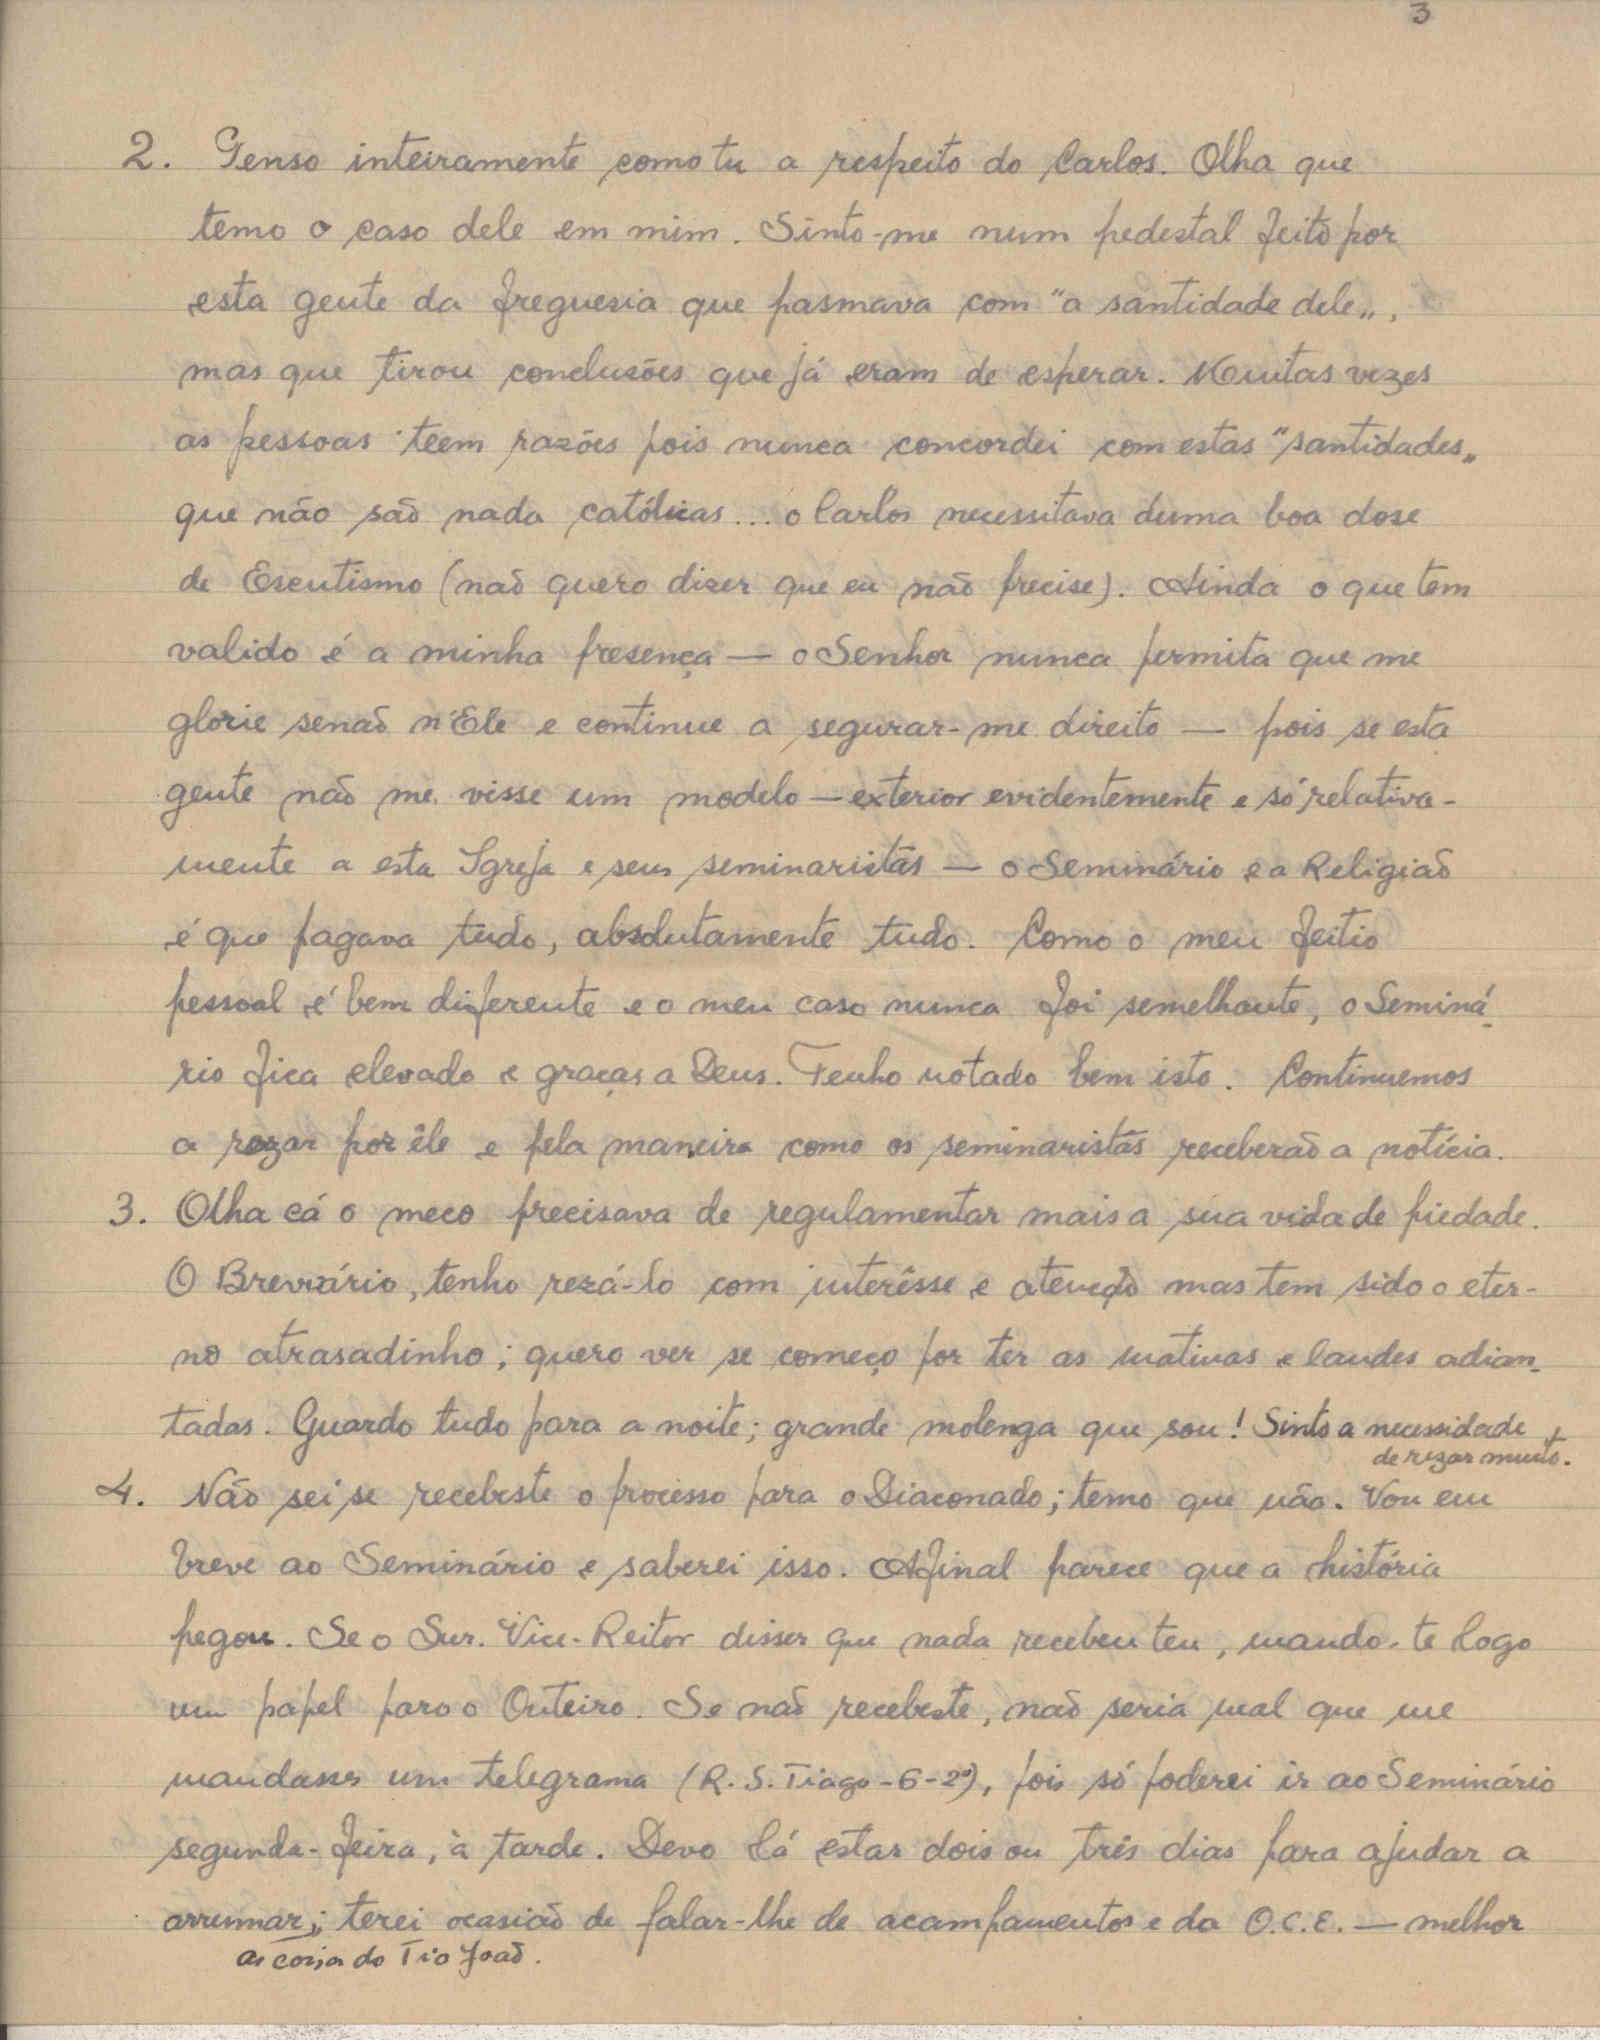 3
2. Penso inteiramente como tu a respeito do Carlos. Olha que
temo o caso dele em mim. Sinto-me num pedestal feito por
esta gente da freguesia que pasmava com "a santidade dele„,
mas que tirou conclusões que já eram de esperar. Muitas vezes
as pessoas teem razões pois nunca concordei com estas "santidades„
que não são nada católicas... o Carlos necessitava duma boa dose
de Escutismo (não quero dizer que eu não precise). Ainda o que tem
valido é a minha presença — o Senhor nunca permita que me
glorie senão n'Ele e continue a segurar-me direito — pois se esta
gente não me visse um modelo — exterior evidentemente e só relativa-
mente a esta Igreja e seus seminaristas — o Seminário e a Religião
é que pagava tudo, absolutamente tudo. Como o meu feitio
pessoal é bem diferente e o meu caso nunca foi semelhante, o Seminá-
rio fica elevado e graças a Deus. Tenho notado bem isto. Continuemos
a rezar por êle e pela maneira como os seminaristas receberão a notícia.
3. Olha cá o meco precisava de regulamentar mais a sua vida de piedade.
O Breviário, tenho rezá-lo com interêsse e atenção mas tem sido o eter-
no atrasadinho; quero ver se começo por ter as matinas e laudes adian-
tadas. Guardo tudo para a noite; grande molenga que sou! Sinto a necessidade
de rezar muito.
4. Não sei se recebeste o processo para o Diaconado; temo que não. Vou em
breve ao Seminário e saberei isso. Afinal parece que a história
pegou. Se o Snr. Vice-Reitor disser que nada recebeu teu, mando-te logo
um papel para o Outeiro. Se não recebeste, não seria mal que me
mandasses um telegrama (R. S. Tiago-6-2º), pois só poderei ir ao Seminário
segunda-feira, à tarde. Devo lá estar dois ou três dias para ajudar a
arrumar; terei ocasião de falar-lhe de acampamentos e da O.C.E. — melhor
as coisas do Tio João.